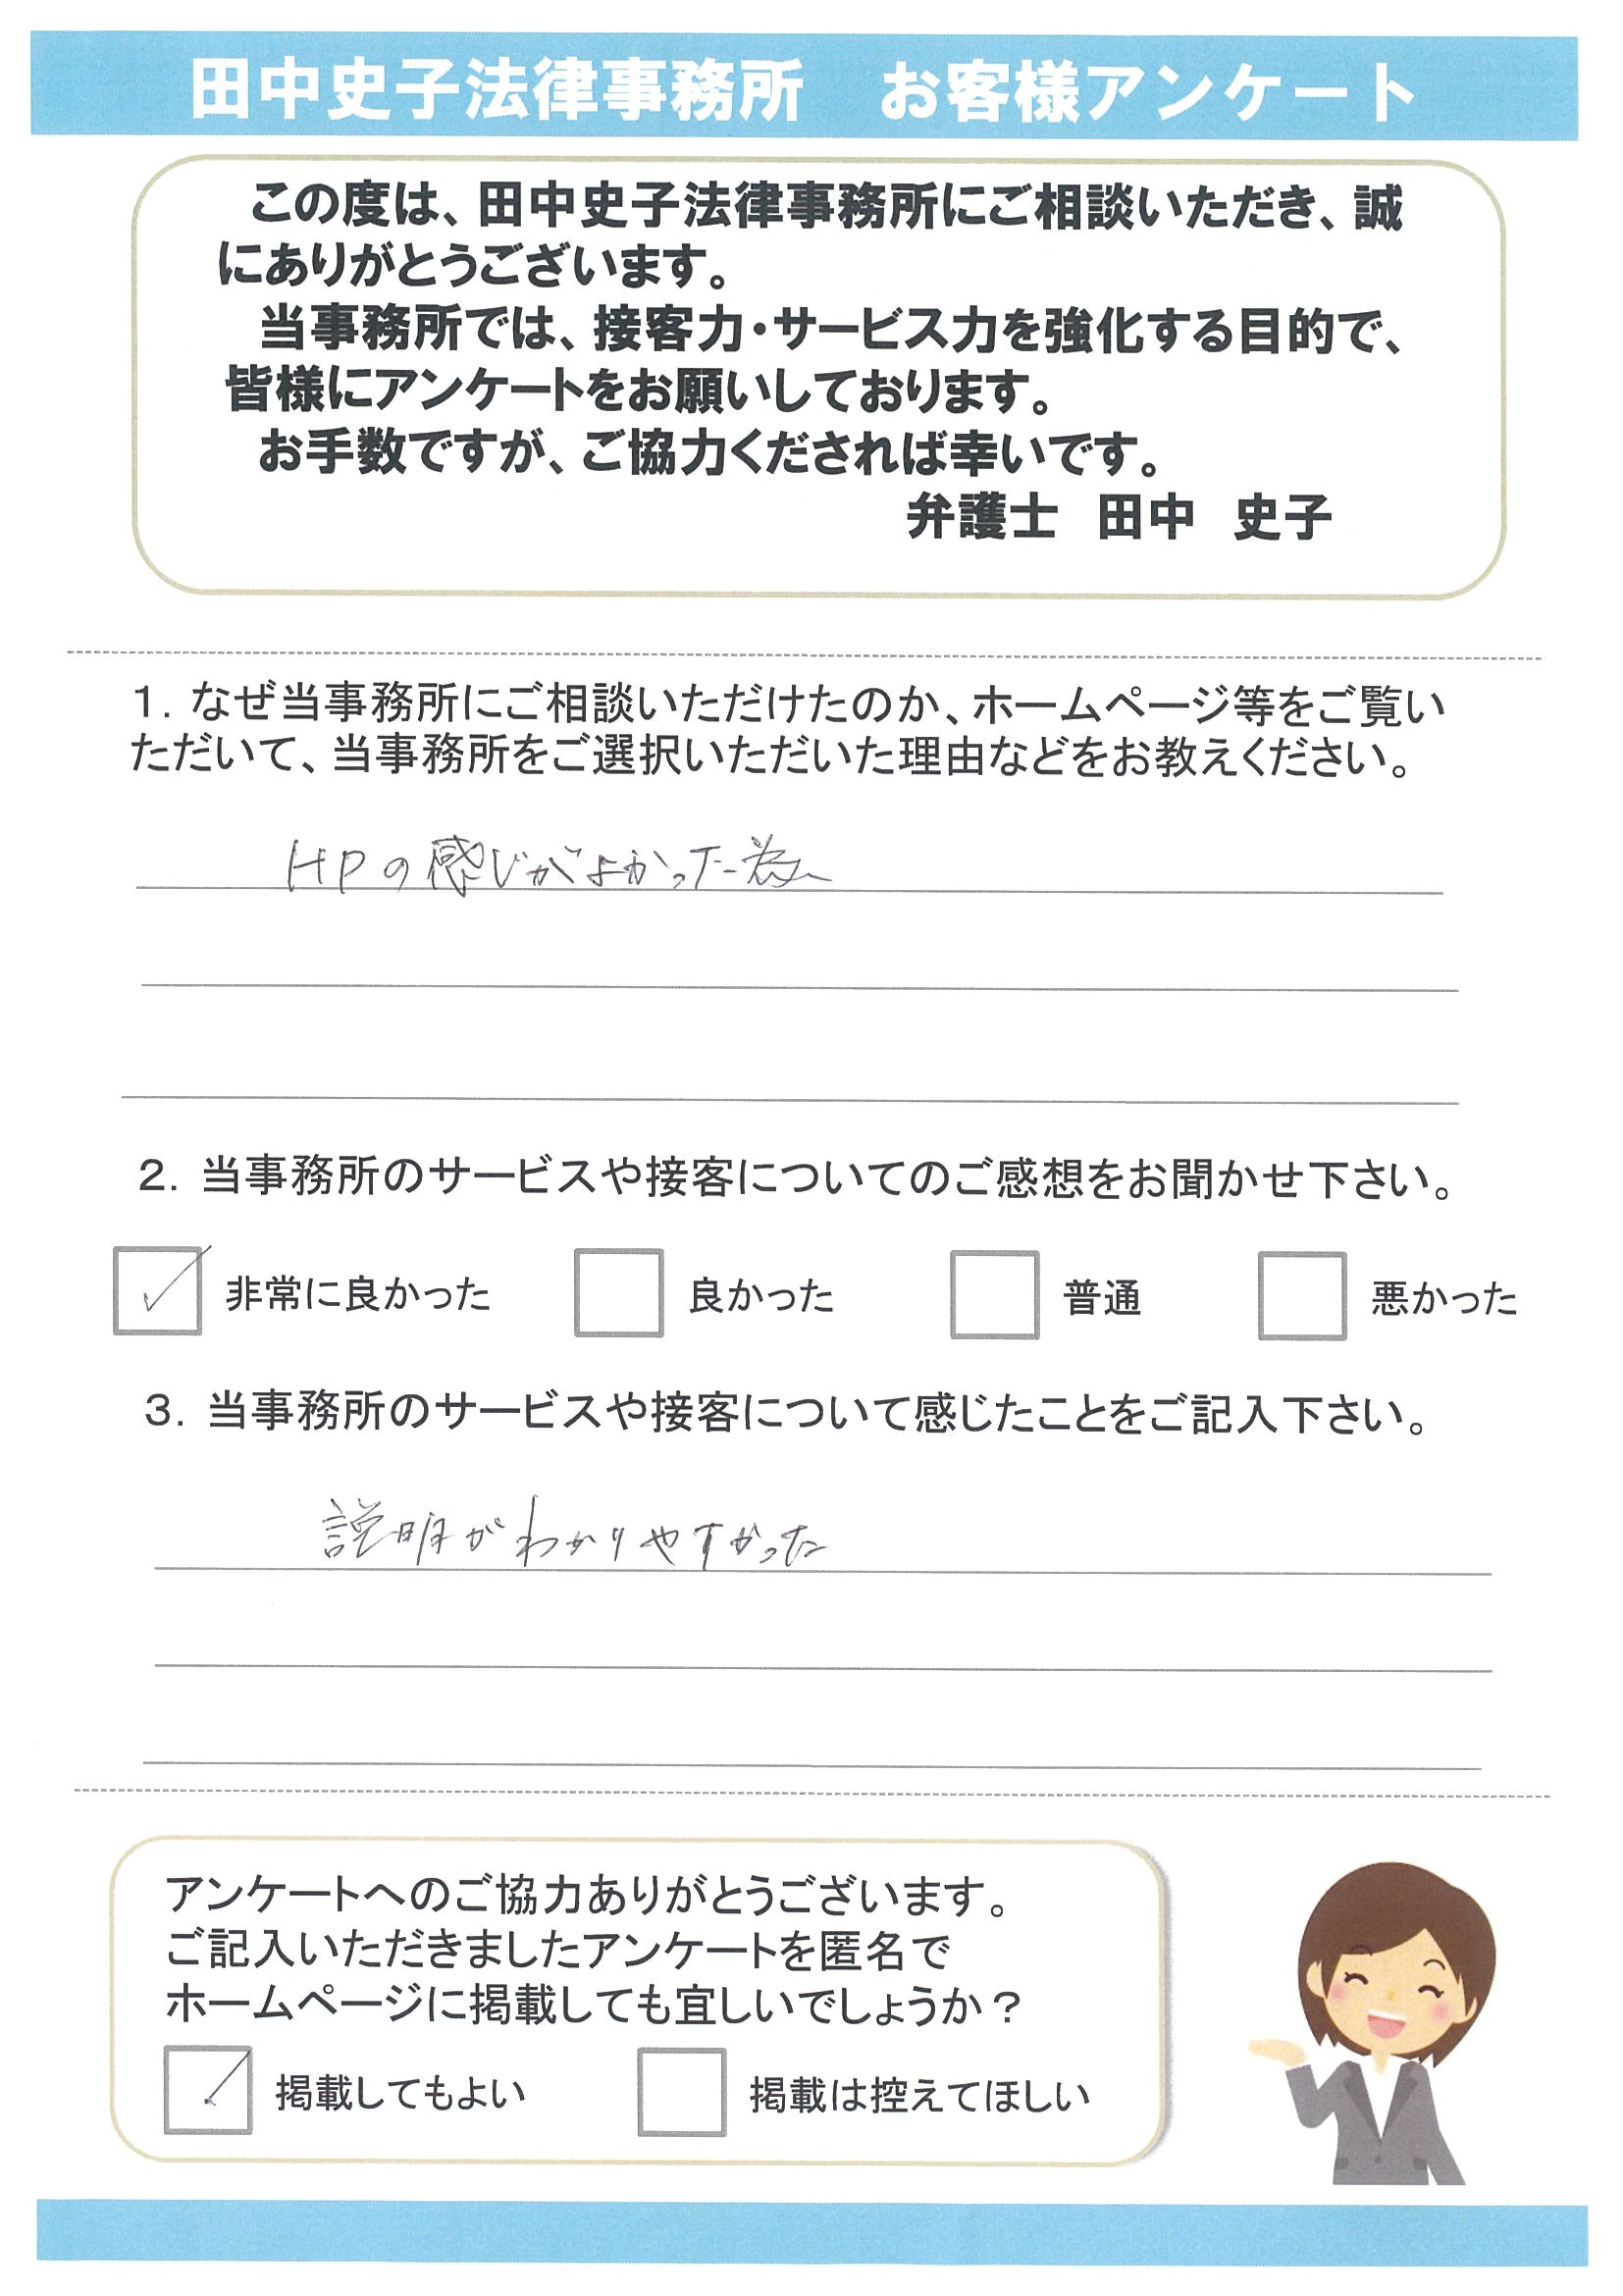 田中史子法律事務所　お客様アンケート
この度は、田中史子法律事務所にご相談いただき、誠
にありがとうございます。
当事務所では、接客力・サービス力を強化する目的で、
皆様にアンケートをお願いしております。
お手数ですが、ご協力くだされば幸いです。
弁護士　田中　史子
１．なぜ当事務所にご相談いただけたのか、ホームページ等をご覧い
ただいて、当事務所をご選択いただいた理由などをお教えください。
HPの感じがよかった為
２．当事務所のサービスや接客についてのご感想をお聞かせ下さい。
✓ 非常に良かった　良かった　普通　悪かった
３．当事務所のサービスや接客について感じたことをご記入下さい。
説明がわかりやすかった
アンケートへのご協力ありがとうございます。
ご記入いただきましたアンケートを匿名で
ホームページに掲載しても宜しいでしょうか？
✓ 掲載してもよい　掲載は控えてほしい